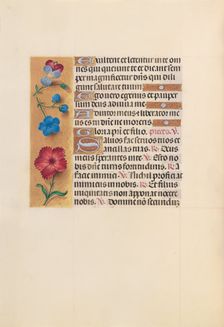 Exultent et letentur in te om
nes qui querunt te et dicant sem
per magnificetur dominus qui dili
gunt salutare tuum
Ego vero egenus et pauper
sum deus adiuva me
Adiutor meus et liberator me
us es tu domine ne moreris
Gloria patri et filio
Salvos fac servos tuos et
ancillas tuas
Deus meus sperantes in te Esto no
bis domine turris fortitudinis
A facie inimici Nichil proficiat
inimicus in nobis Et filius
iniquitatis non apponat nocere
nobis Domine non secundum